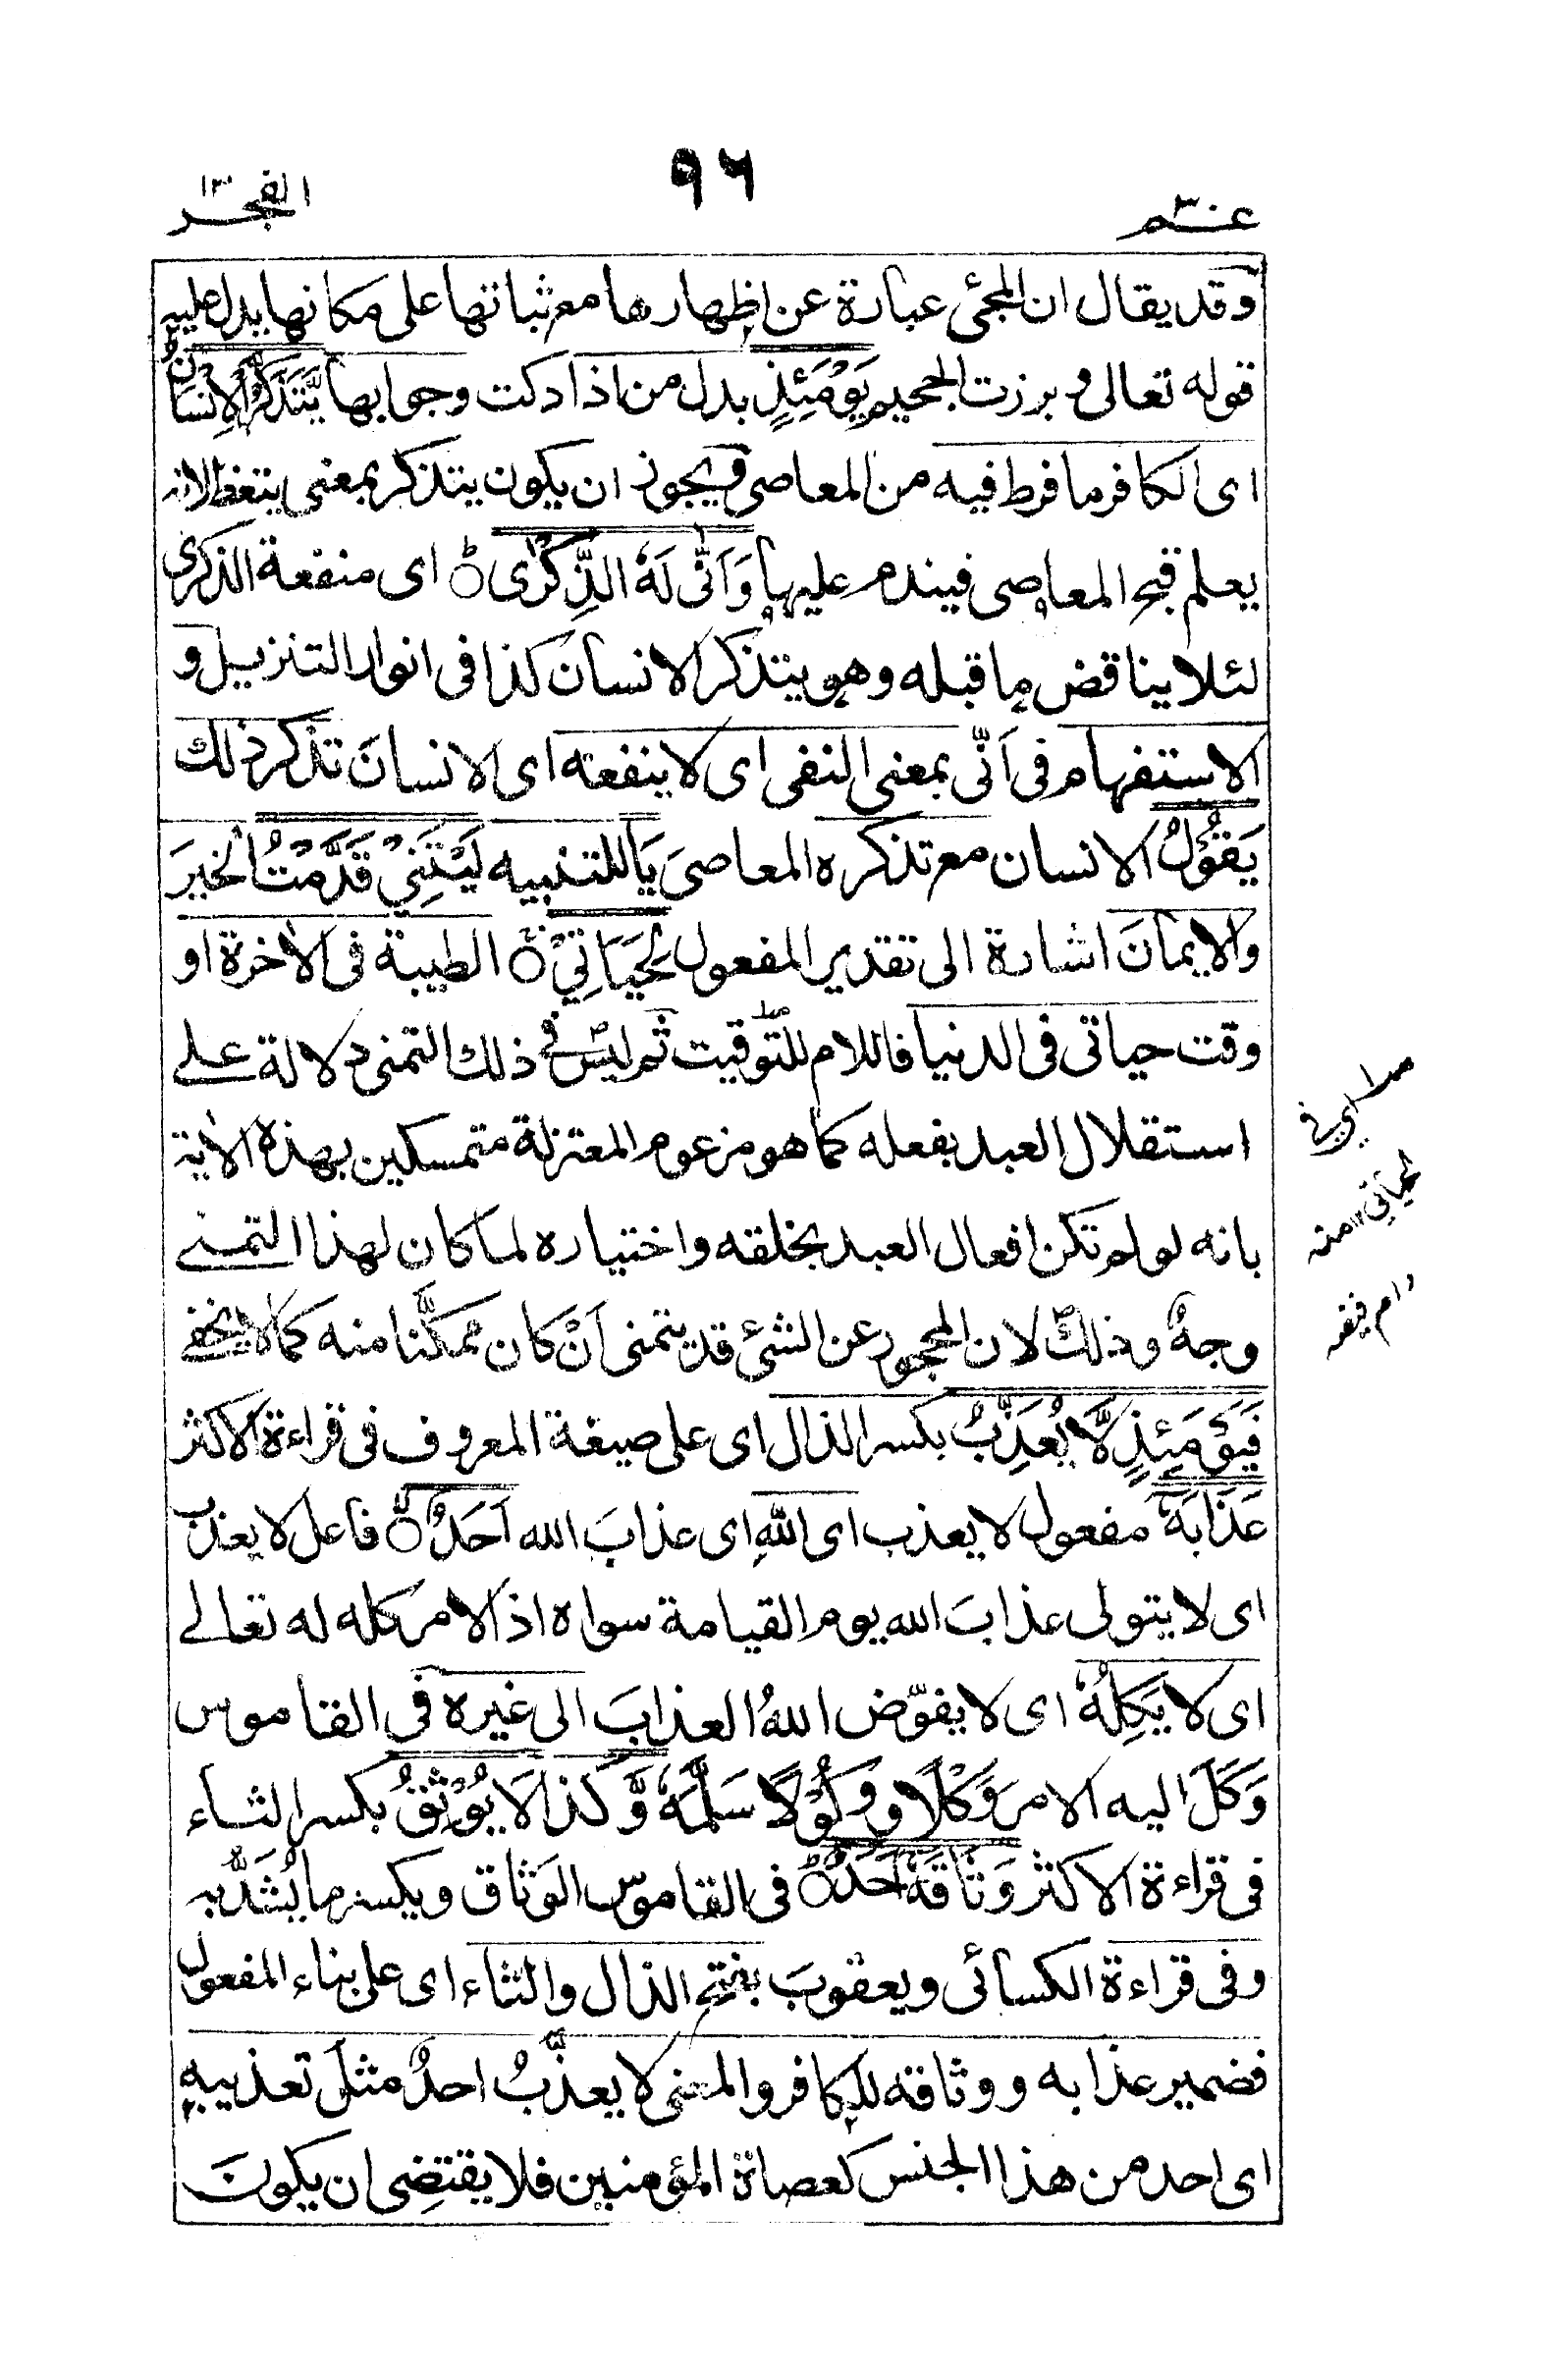 عم ٣٠
٩٦
الفجر
وقد يقال ان المجئ عبارة عن اظهارها مع ثباتها على مكانها يدل عليه
قوله تعالى وبرزت الجحيم يَوْمَئِذٍ بدل من اذا دكت وجوابها يَّتَذَكَّرُ الْاِنْسَانُ
اى الكافر ما فرط فيه من المعاصى ويجوز ان يكون يتذكر بمعنى يتعظ لانه
يعلم قبح المعاصى فيندم عليها وَاَنّٰى لَهُ الذِّكْرٰى ۝ اى منفعة الذكرى
لئلا يناقض ما قبله وهو يتذكر الانسان كذا فى انوار التنزيل و
الاستفهام فى اَنّٰى بمعنى النفى اى لا ينفعه اى الانسانَ تذكر ذلك
يَقُوْلُ الانسان مع تذكره المعاصىَ يَا للتنبيه لَيْتَنِيْ قَدَّمْتُ الخيرَ
والايمانَ اشارة الى تقدير المفعول لِحَيَاتِيْ ۝ الطيبة فى الاٰخرة او
وقت حياتى فى الدنيا فاللام للتوقيت ثم ليس فى ذلك التمنى دلالة على
استقلال العبد بفعله كما هو مزعوم المعتزلة متمسكين بهذه الاٰية
بانه لو لم تكن افعال العبد بخلقه واختياره لما كان لهذا التمنى
وجهٌ وذلك لان المحجور عن الشئ قد يتمنى اَنْ كان ممكَّنا منه كما لا يخفى
فَيَوْمَئِذٍ لَّا يُعَذِّبُ بكسر الذال اى على صيغة المعروف فى قراءة الاكثر
عَذَابَهٗ مفعول لا يعذب اى اللّٰهِ اى عذابَ الله اَحَدٌ ۝ فاعل لا يعذب
اى لا يتولى عذابَ الله يوم القيامة سواه اذ الامر كله له تعالى
اى لا يَكِلُهٗ اى لا يفوّض اللهُ العذابَ الى غيره فى القاموس
وَكَلَ اليه الامرَ وَكْلًا ووُكُوْلًا سَلَّمَهٗ وَّكذا لَا يُوْثِقُ بكسر الثاء
فى قراءة الاكثر وَثَاقَهٗ اَحَدٌ ۝ فى القاموس الوَثاق ويكسر ما يُشَدُّ به
وفى قراءة الكسائى ويعقوبَ بفتح الذال والثاء اى على بناء المفعول
فضمير عذابه ووثاقه للكافر والمعنى لا يعذَّبُ احدٌ مثلَ تعذيبه
اى احد من هذا الجنس كعصاة المؤمنين فلا يقتضى ان يكون
اى فى
لحياتى ١٢ منه
دام فيضه